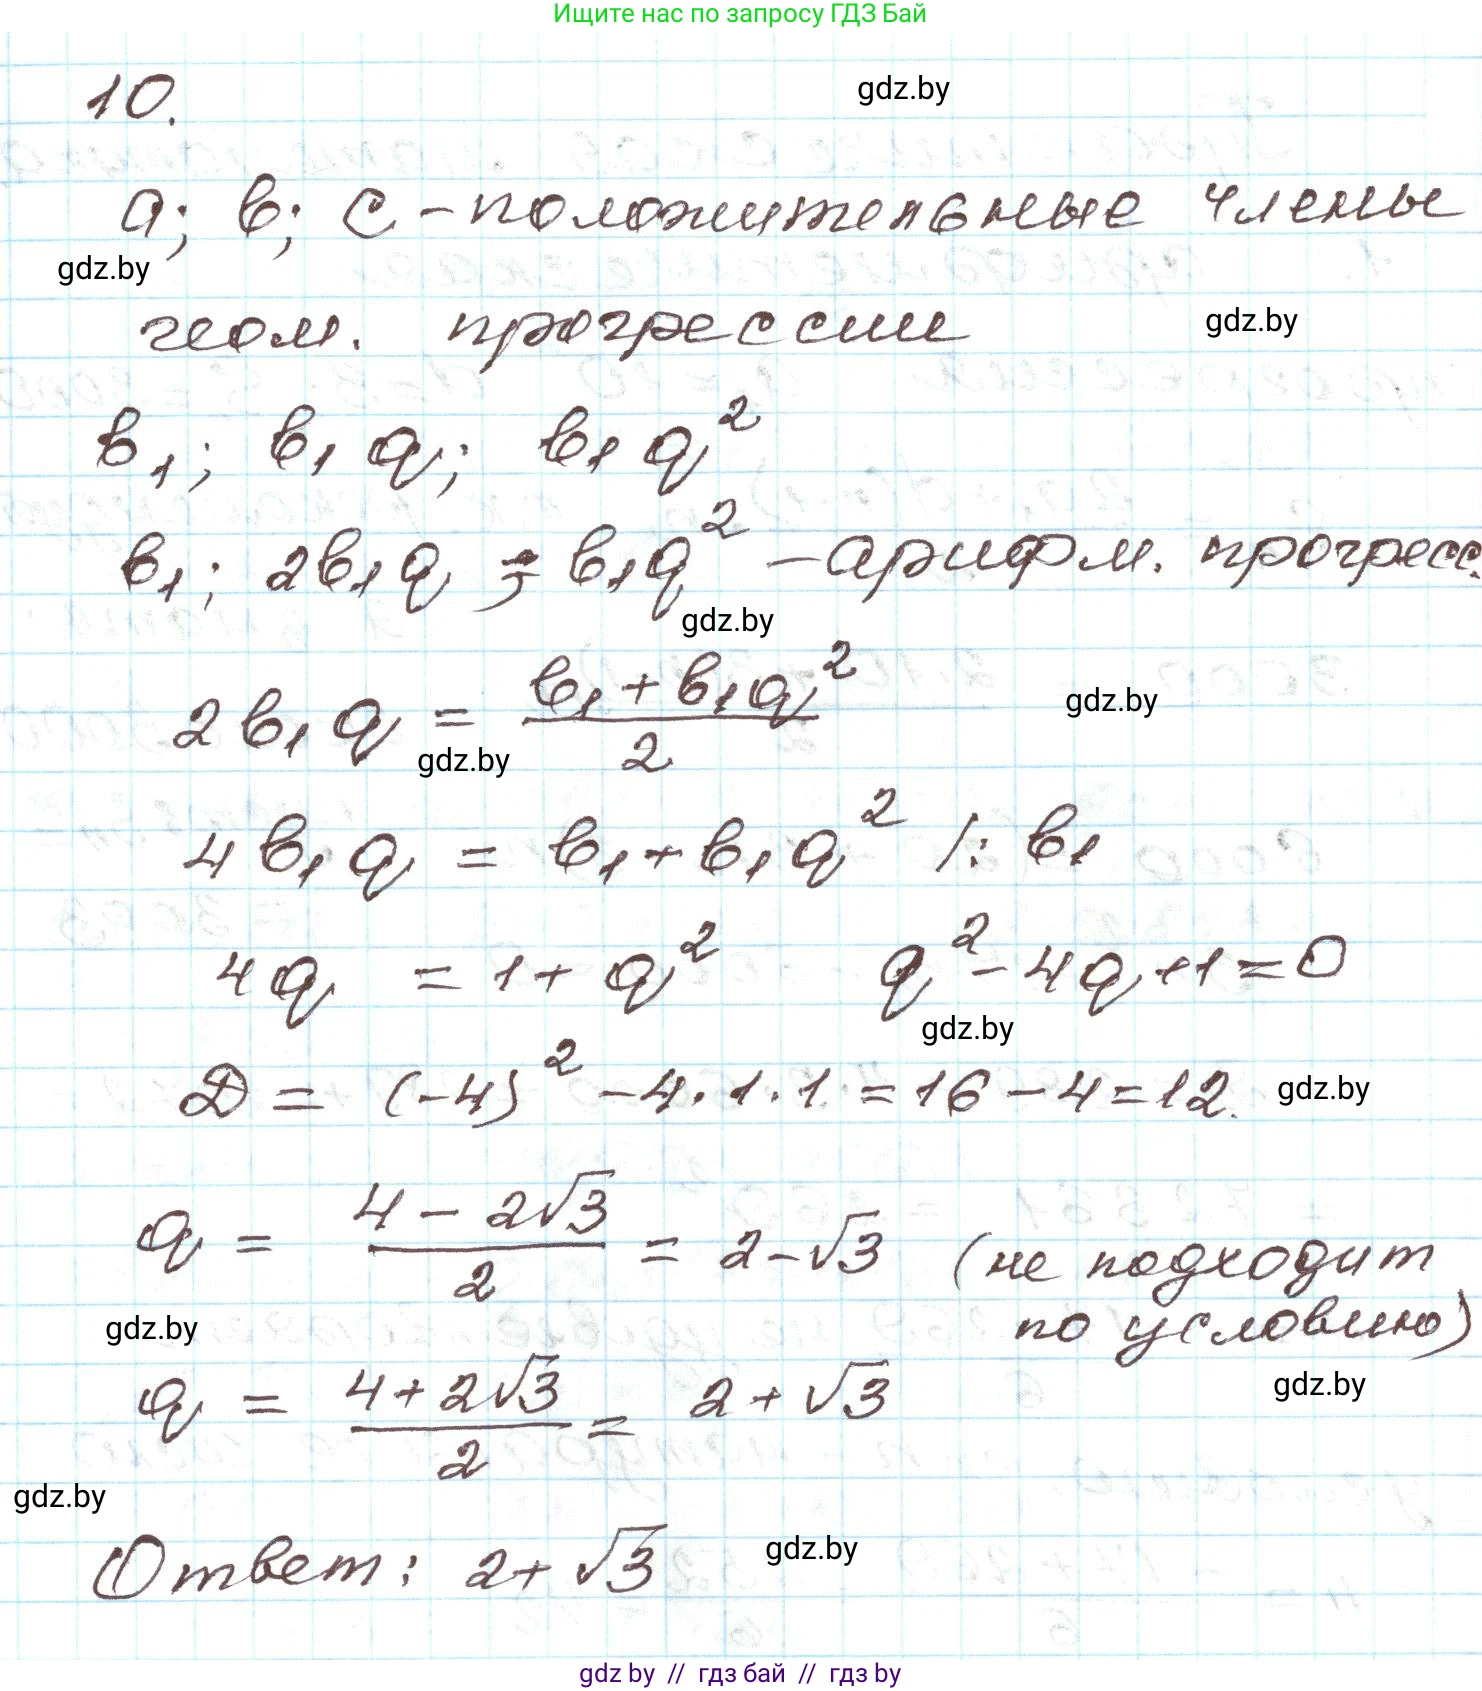 Ищите нас по запросу ГДЗ Бай
10.
gdz.by
а; в; с - положительные члены
gdz.by
геом. прогрессии
gdz.by
в₁; в₁q; в₁q²
в₁; 2в₁q; в₁q² - арифм. прогресс.
gdz.by
2в₁q = (в₁ + в₁q²)/2
gdz.by
gdz.by
4в₁q = в₁ + в₁q² /: в₁
4q = 1 + q² q² - 4q + 1 = 0
gdz.by
D = (-4)² - 4 · 1 · 1 = 16 - 4 = 12.
gdz.by
q = (4 - 2√3)/2 = 2 - √3 (не подходит
по условию)
gdz.by
gdz.by
q = (4 + 2√3)/2 = 2 + √3
gdz.by
Ответ: 2 + √3
gdz.by
gdz by // гдз бай // гдз by